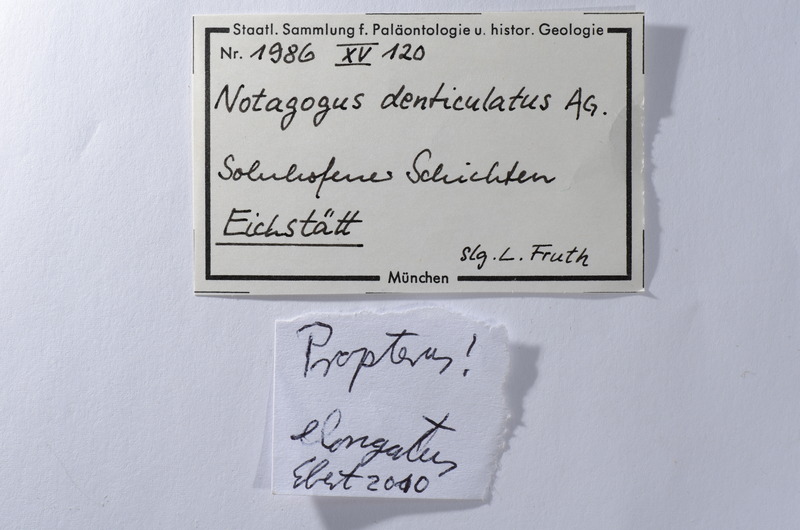 Staatl. Sammlung f. Paläontologie u. histor. Geologie
Nr. 1986 XV 120
Notagogus denticulatus AG.
Solnhofener Schichten
Eichstätt
slg. L. Fruth
München
Propterus!
elongatus
Ebert 2010